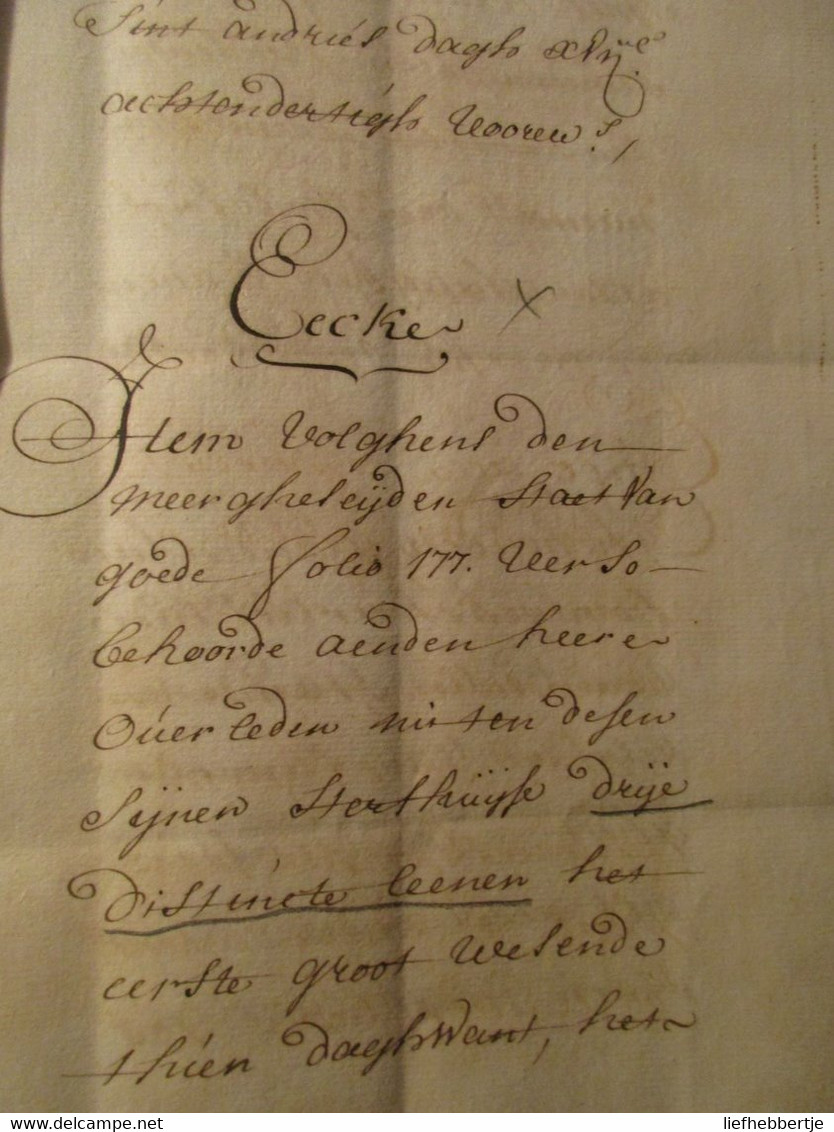 Sint andries dagh xvijc
achtendertigh voorens,
Eecke
Item volghens den
meergheseijden staet van
goede folio 177. verso
behoorde aenden heere
overleden mitten desen
sijnen sterfhuijse drije
distincte leenen het
eerste groot wesende
thien daghwant, het
delcampe.net
liefhebbertje